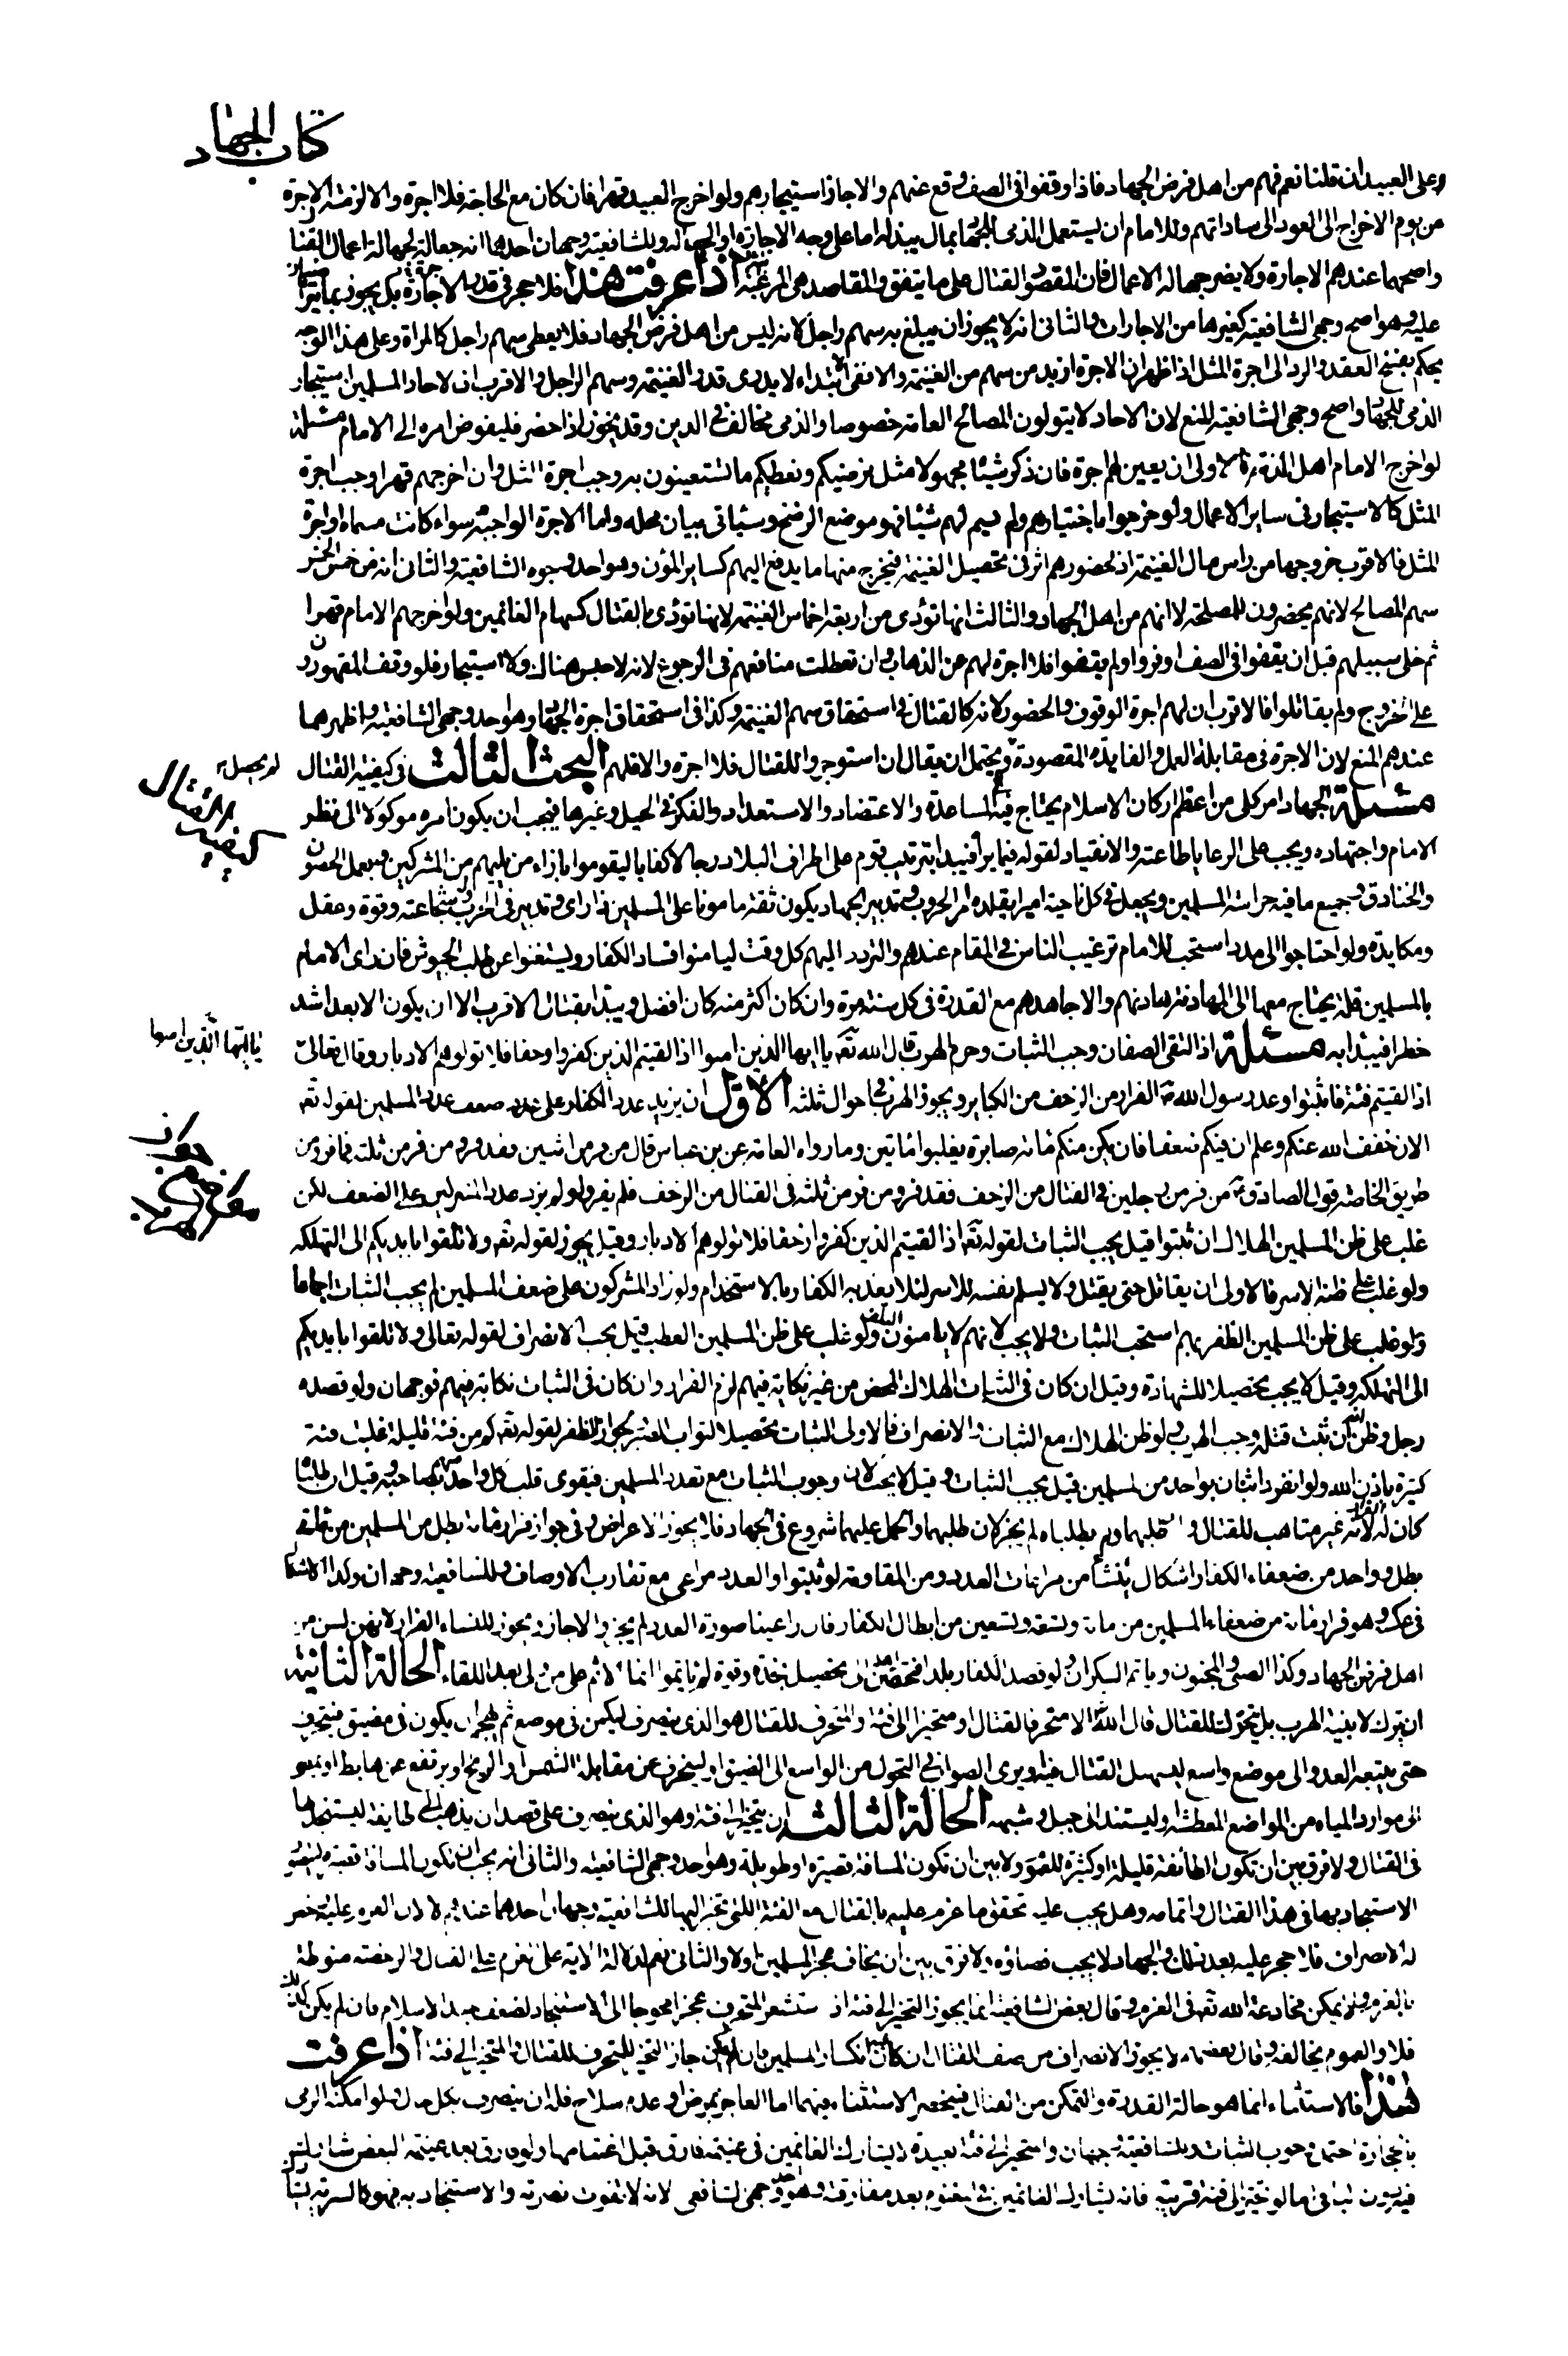 كتاب الجهاد
وعلى العبيد ان قلنا نعم فهم من اهل فرض الجهاد فاذا وقفوا فى الصف وقع عنهم والا جاز استيجارهم ولو اخرج العبيد قهرا فان كان مع الحاجة فلا اجرة والا لزمته الاجرة
من يوم الاخراج الى العود الى ساداتهم وللامام ان يستعمل الذمى للجهاد بمال يبذله اما على وجه الاجارة او الجعالة وللشافعية وجهان احدهما انه جعالة لجهالة اعمال القتال
واصحهما عندهم الاجارة ولا يضر جهالة الاعمال فان المقصود القتال على ما يتفق والمقاصد هى المرعية اذا عرفت هذا فلا حجر فى قدر الاجارة بل يجوز بما يتراضيان
عليه وهو اصح وجهى الشافعية كغيرها من الاجارات والثانى انه لا يجوز ان يبلغ به سهم راجل لانه ليس من اهل فرض الجهاد فلا يعطى سهم راجل كالمراة وعلى هذا الوجه
يحكم بفسخ العقد والرد الى اجرة المثل اذا ظهر ان الاجرة ازيد من سهم من الغنيمة والا ففى الابتداء لا يدرى قدر الغنيمة وسهم الراجل والاقرب ان لاحاد المسلمين استيجار
الذمى للجهاد واصح وجهى الشافعية المنع لان الاحاد لا يتولون المصالح العامة خصوصا والذمى مخالف فى الدين وقد يخون اذا حضر فليفوض امره الى الامام مسئلة
لو اخرج الامام اهل الذمة فالاولى ان يعين لهم اجرة فان ذكر شيئا مجهولا مثل نرضيكم ونعطيكم ما تستعينون به وجب اجرة المثل وان اخرجهم قهرا وجب اجرة
المثل كالاستيجار فى ساير الاعمال ولو خرجوا باختيارهم ولم يسم لهم شيئا فهو موضع الرضخ وسياتى بيان محله واما الاجرة الواجبة سواء كانت مسماة او اجرة
المثل فالاقرب خروجها من راس مال الغنيمة اذ لحضورهم اثر فى تحصيل الغنيمة فيخرج منها ما يدفع اليهم كساير المؤن وهو احد وجوه الشافعية والثانى انه من خمس الخمس
سهم المصالح لانهم يحضرون للمصلحة لا انهم من اهل الجهاد والثالث انها تؤدى من اربعة اخماس الغنيمة لانها تؤدى بالقتال كسهام الغانمين ولو اخرجهم الامام قهرا
ثم خلى سبيلهم قبل ان يقفوا فى الصف او فروا ولم يقفوا فلا اجرة لهم عن الذهاب وان تعطلت منافعهم فى الرجوع لانه لا حبس هناك ولا استيجار فلو وقف المقهورون
على الخروج ولم يقاتلوا فالاقرب ان لهم اجرة الوقوف والحضور لانه كالقتال فى استحقاق سهم الغنيمة وكذا فى استحقاق اجرة الجهاد وهو احد وجهى الشافعية واظهرهما
عندهم المنع لان الاجرة فى مقابلة العمل والفايدة المقصودة ويحتمل ان يقال ان استوجروا للقتال فلا اجرة والا فلهم البحث الثالث فى كيفية القتال
مسئلة الجهاد امر كلى من اعظم اركان الاسلام يحتاج فيه الى المساعدة والاعتضاد والاستعداد والفكر فى الحيل وغيرها فيجب ان يكون امره موكولا الى نظر
الامام واجتهاده ويجب على الرعايا طاعته والانقياد لقوله فيما يراه فيبدا بترتيب قوم على اطراف البلاد رجالا كفايا ليقوموا بازاء من يليهم من المشركين ويعمل الحصون
والخنادق وجميع ما فيه حراسة المسلمين ويجعل فى كل ناحية اميرا يقلده امر الحروب وتدبير الجهاد يكون ثقة مامونا على المسلمين ذا راى وتدبير فى الحرب وشجاعة وقوة وعقل
ومكايدة ولو احتاجوا الى مدد استحب للامام ترغيب الناس فى المقام عندهم والتردد اليهم كل وقت ليامنوا فساد الكفار ويستغنوا عن طلب الجيوش فان راى الامام
بالمسلمين قلة يحتاج معها الى المهادنة هادنهم والا جاهدهم مع القدرة فى كل سنة مرة وان كان اكثر منه كان افضل ويبتدا بقتال الاقرب الا ان يكون الابعد اشد
خطرا فيبتدا به مسئلة اذا التقى الصفان وجب الثبات وحرم الهرب قال الله تعه يا ايها الذين امنوا اذا لقيتم الذين كفروا زحفا فلا تولوهم الادبار وقال تعالى
اذا لقيتم فئة فاثبتوا وعدد رسول الله ص الفرار من الزحف من الكباير ويجوز الهرب فى احوال ثلثة الاول ان يزيد عدد الكفار على عدد ضعف عدد المسلمين لقوله تعه
الان خفف الله عنكم وعلم ان فيكم ضعفا فان يكن منكم مائة صابرة يغلبوا مائتين وما رواه العامة عن بن عباس قال من فر من اثنين فقد فر ومن فر من ثلثة فما فر ومن
طريق الخاصة قول الصادق ع من فر من رجلين فى القتال من الزحف فقد فر ومن فر من ثلثة فى القتال من الزحف فلم يفر ولو لم يزد عدد المشركين على الضعف لكن
غلب على ظن المسلمين الهلاك ان ثبتوا قيل يجب الثبات لقوله تعه اذا لقيتم الذين كفروا زحفا فلا تولوهم الادبار وقيل يجوز لقوله تعه ولا تلقوا بايديكم الى التهلكة
ولو غلب على ظنه الاسر فالاولى ان يقاتل حتى يقتل ولا يسلم نفسه للاسر لئلا يعذبه الكفار بالاستخدام ولو زاد المشركون على ضعف المسلمين لم يجب الثبات اجماعا
ولو غلب على ظن المسلمين الظفر بهم استحب الثبات ولا يجب لانهم لا يامنون التلف ولو غلب على ظن المسلمين العطب قيل يجب الانصراف لقوله تعالى ولا تلقوا بايديكم
الى التهلكة وقيل لا يجب تحصيلا للشهادة وقيل ان كان فى الثبات الهلاك المحض من غير نكاية فيهم لزم الفرار وان كان فى الثبات نكاية فيهم فوجهان ولو قصده
رجل وظن انه ان ثبت قتله وجب الهرب ولو ظن الهلاك مع الثبات والانصراف فالاولى الثبات تحصيلا لثواب الصابر ولجواز الظفر لقوله تعه كم من فئة قليلة غلبت فئة
كثيرة باذن الله ولو انفرد اثنان بواحد من المسلمين قيل يجب الثبات وقيل لا يجب لان وجوب الثبات مع تعدد المسلمين فيقوى قلب كل واحد منهم بصاحبه وقيل ان طلباه
كان له الفرار لانه غير متاهب للقتال وان طلبهما ولم يطلباه لم يجز لان طلبهما والحمل عليهما شروع فى الجهاد فلا يجوز الاعراض وفى جواز فرار مائة بطل من المسلمين من مائتى
بطل وواحد من ضعفاء الكفار اشكال ينشأ من مراعات العدد ومن المقاومة لو ثبتوا والعدد مراعى مع تقارب الاوصاف وللشافعية وجهان وكذا الاشكال
فى عكسه وهو فرار مائة من ضعفاء المسلمين من مائة وتسعة وتسعين من ابطال الكفار فان راعينا صورة العدد لم يجز والا جاز ويجوز للنساء الفرار لانهن لسن من
اهل فرض الجهاد وكذا الصبى والمجنون وياثم السكران ولو قصد الكفار بلدا فتحصن اهله الى تحصيل نجدة وقوة لم ياثموا انما الاثم على من ولى بعد اللقاء الحالة الثانية
ان يترك لا بنية الهرب بل يتحرف للقتال قال الله تعه الا متحرفا لقتال او متحيزا الى فئة والمتحرف للقتال هو الذى ينصرف ليكمن فى موضع ثم يهجم او يكون فى مضيق فيتحرف
حتى يتبعه العدو الى موضع واسع ليسهل القتال فيه او يرى الصواب فى التحول من الواسع الى الضيق او لينحرف عن مقابلة الشمس او الريح او يرتفع عن هابط او يمضى
الى موارد المياه من المواضع المعطشة او ليستند الى جبل وشبهه الحالة الثالثة ان يتحيز الى فئة وهو الذى ينصرف على قصد ان يذهب الى طايفة ليستنجد بها
فى القتال ولا فرق بين ان تكون الطائفة قليلة او كثيرة للعموم ولا بين ان تكون المسافة قصيرة او طويلة وهو احد وجهى الشافعية والثانى انه يجب ان تكون المسافة قصيرة ليتصور
الاستنجاد بها فى هذا القتال واتمامه وهل يجب عليه تحقيق ما عزم عليه بالقتال مع الفئة التى تحيز اليها للشافعية وجهان احدهما عندهم لا لان العزم عليه رخص
له الانصراف فلا حجر عليه بعد ذلك والجهاد لا يجب قضاؤه ولا فرق بين ان يخاف عجز المسلمين او لا والثانى نعم لدلالة الاية على العزم على القتال والرخصة منوطة
بالعزم ولا يمكن مخادعة الله تعه فى العزم وقال بعض الشافعية انما يجوز التحيز الى فئة اذا استشعر المتحرف عجزا محوجا الى الاستنجاد لضعف جند الاسلام فان لم يكن كذلك
فلا والعموم يخالفه وقال بعضهم لا يجوز الانصراف من صف القتال ان كان فيه انكسار المسلمين فان لم يكن جاز التحيز للمتحرف للقتال والمتحيز الى فئة اذا عرفت
هذا فالاستثناء انما هو حالة القدرة والتمكن من القتال فينحصر الاستثناء فيهما اما العاجز بمرض او عدم سلاح فله ان ينصرف بكل حال ولو امكنه الرمى
بالحجارة احتمل وجوب الثبات وللشافعية وجهان والمتحيز الى فئة بعيدة لا يشارك الغانمين فى غنيمة فارق قبل اغتنامها ولو فارق بعد غنيمة البعض شارك
فيه دون الباقى اما لو تحيز الى فئة قريبة فانه يشارك الغانمين فى المغنوم بعد مفارقته وهو احد وجهى الشافعى لانه لا تفوت نصرته والاستنجاد به فهو كالسرية يشارك
لم يحصل
كيفية القتال
يا ايها الذين امنوا